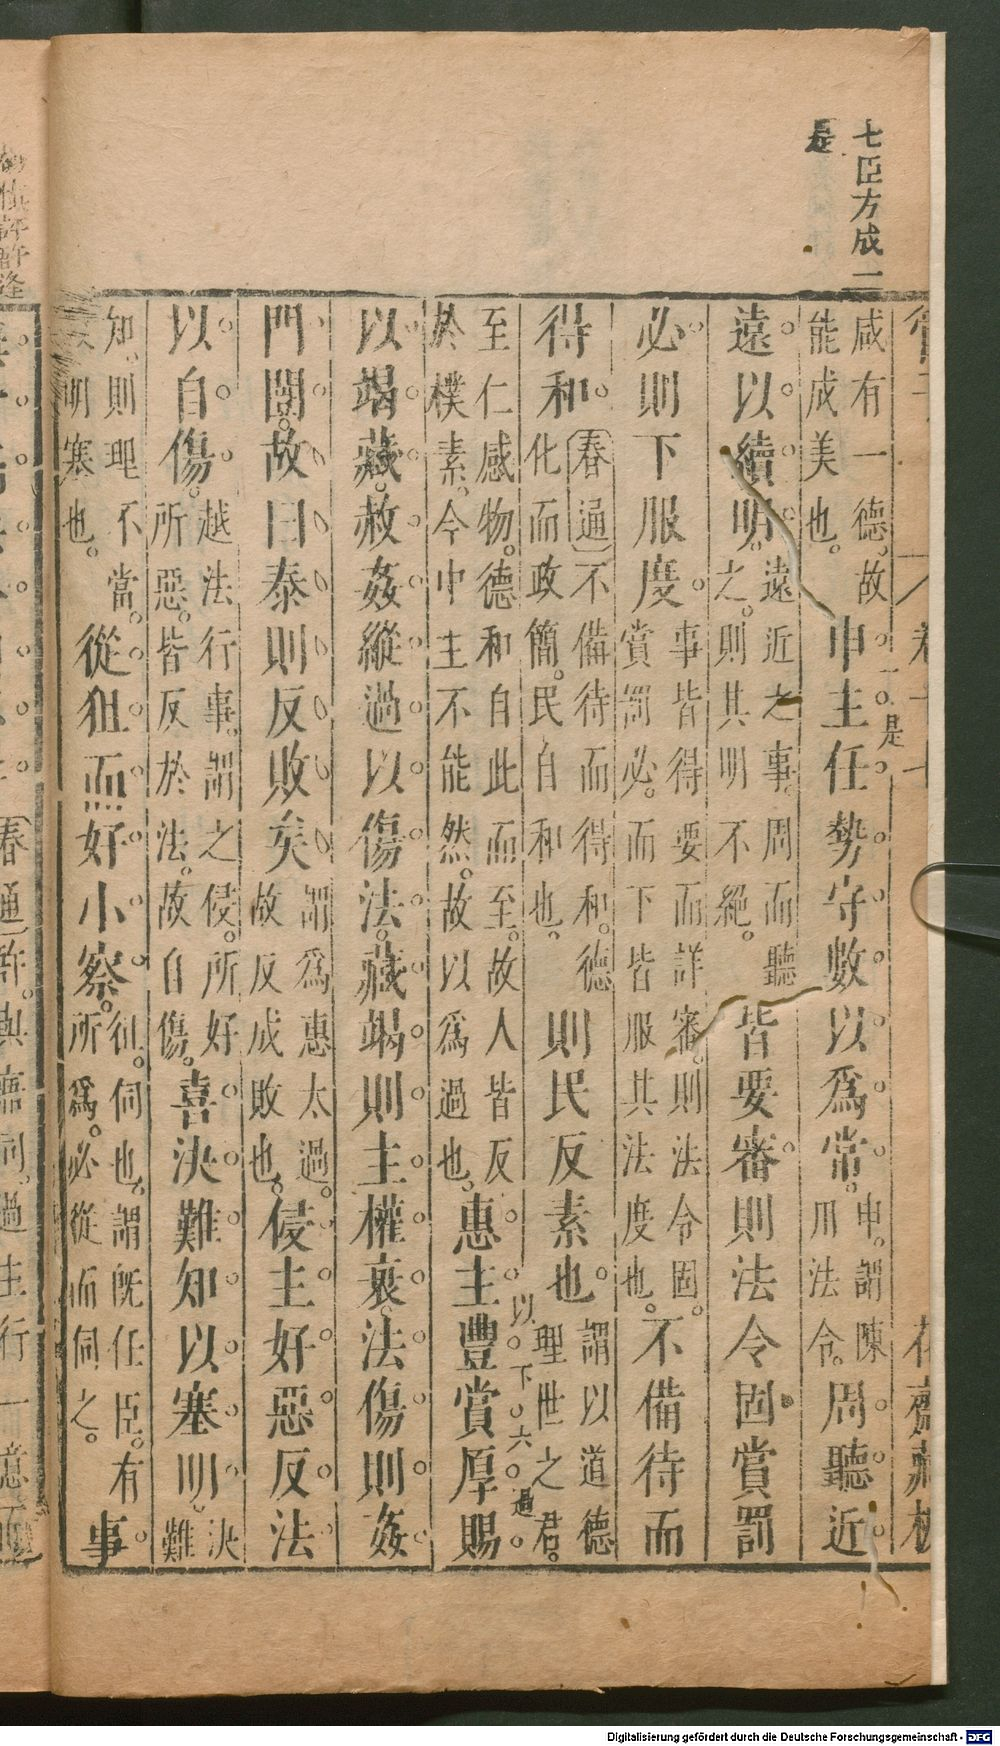 七臣方成一
是
咸有一德故
能成美也
申主任勢守數以爲常
申謂陳
用法令
周聽近
一是
遠以續明
遠近之事周而聽
之則其明不絕
皆要審則法令固賞罰
必則下服度
事皆得要而詳審則法令固
賞罰必而下皆服其法度也
不備待而
得和
春通不備待而得和德
化而政簡民自和也
則民反素也
謂以道德
理世之君
至仁感物德和自此而至故人皆反
於樸素今中主不能然故以爲過也
惠主豐賞厚賜
以下六過
以竭藏赦姦縱過以傷法藏竭則主權衰法傷則姦
門闓故曰泰則反敗矣
謂爲惠太過
故反成敗也
侵主好惡反法
以自傷
越法行事謂之侵所好
所惡皆反於法故自傷
喜決難知以塞明
決
難
知則理不當
明塞也
從狙而好小察
狙伺也謂既任臣有
所爲必從而伺之
事
Digitalisierung gefördert durch die Deutsche Forschungsgemeinschaft - DFG